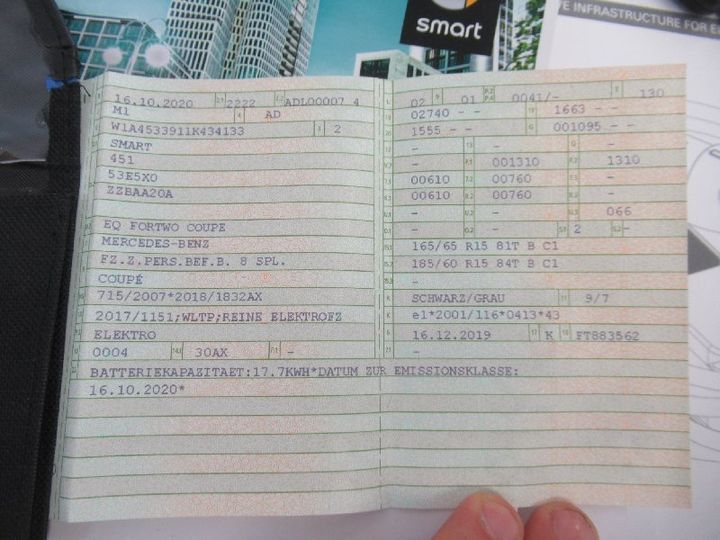 smart
E INFRASTRUCTURE FOR E
16.10.2020 2222 ADL00007 4
M1 AD
W1A4533911K434133 2
SMART
451
53E5X0
ZZBAA20A
EQ FORTWO COUPE
MERCEDES-BENZ
FZ.Z.PERS.BEF.B. 8 SPL.
COUPÉ
715/2007*2018/1832AX
2017/1151;WLTP;REINE ELEKTROFZ
ELEKTRO
0004 30AX -
BATTERIEKAPAZITAET:17.7KWH*DATUM ZUR EMISSIONSKLASSE:
16.10.2020*
02 01 0041/- 130
02740 - - 1663 - -
1555 - - 001095 - -
- - -
- 001310 1310
00610 00760 -
00610 00760 -
- - 066
- - 2 -
165/65 R15 81T B C1
185/60 R15 84T B C1
-
SCHWARZ/GRAU 9/7
e1*2001/116*0413*43
16.12.2019 K FT883562
-